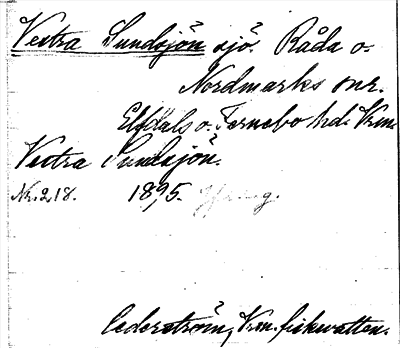 Vestra Sundsjön sjö. Råda o.
Nordmarks snr.
Elfdals o. Fernebo hd. Vrm.
Vestra Sundsjön.
Nr. 2, 18. 1895.
Cederström, Vrm. fiskevatten.